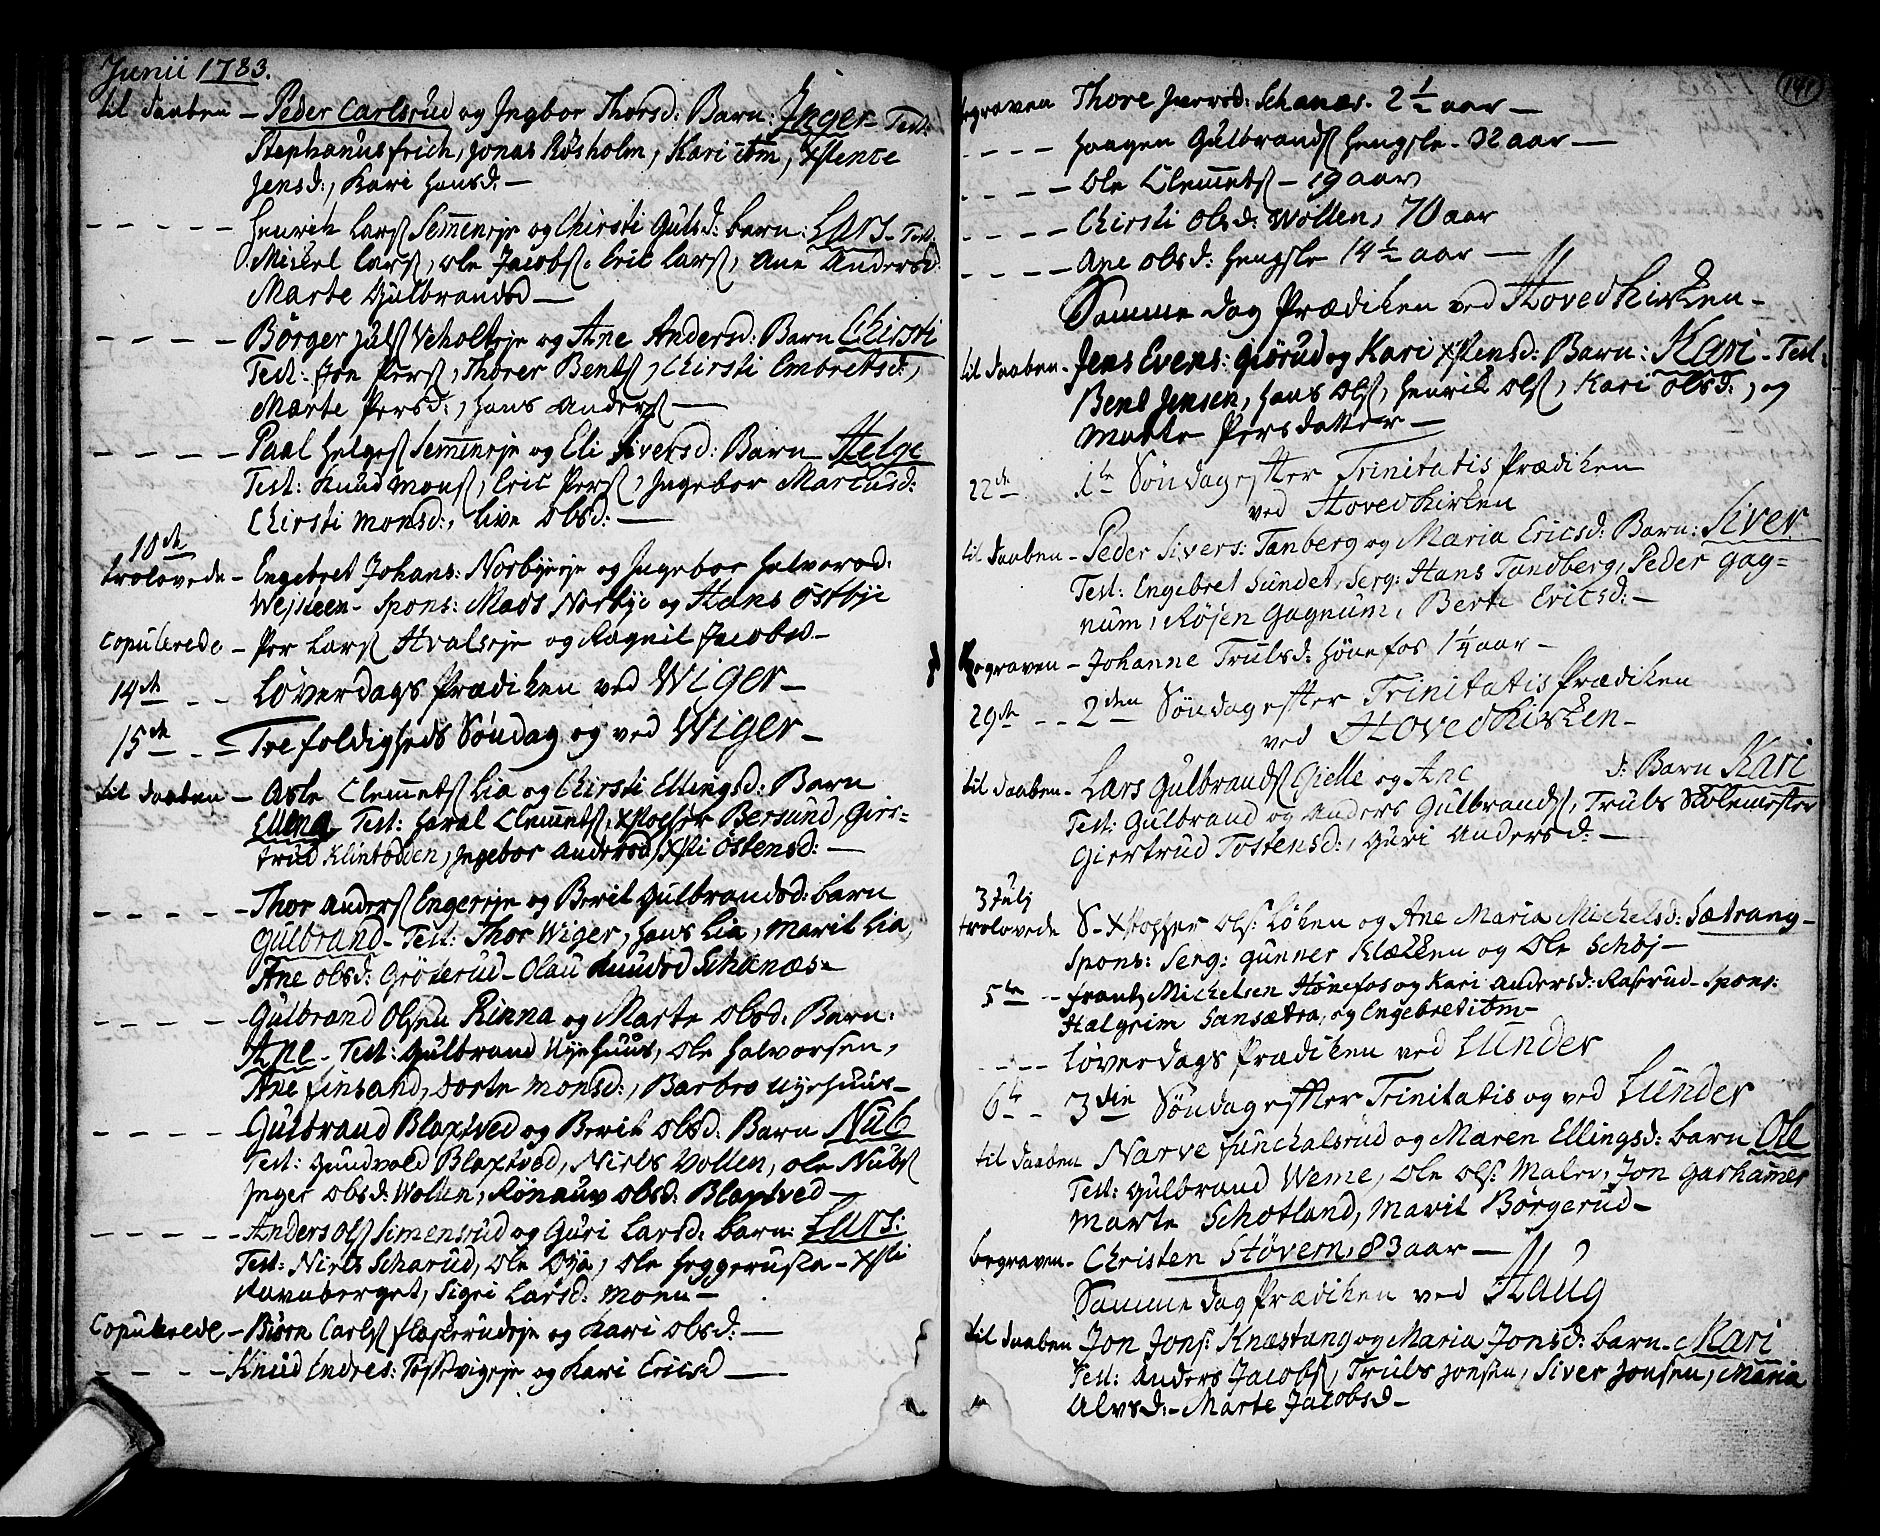 Junii 1783.
til daaben – Peder Carlsrud og Ingbor Thorsd: Barn: Inger – Test:
Stephanus frich, Jonas Røsholm, Kari itm, Xstence
Jensd:, Kari Hansd. –
– – – – Henrich Lars Semmeneje og Chirsti Gulsd: barn: Lars – Test:
Mickel Lars, Ole Jacobs, Eric Lars, Ane Andersd:
Marte Gulbrandsd –
– – – – Börger Juls Veholteje og Ane Andersd: Barn Chirsti
Test: Jon Pers, Thorer Bents, Chirsti Embretsd:,
Marte Persd:, Hans Anders –
– – – – Paal Helges Semmeneje og Eli Siversd: Barn – Helge
Test: Knud Mons, Eric Pers, Ingebor Marcusd:
Chirsti Monsd:, Live Olsd: –
10de
trolovede – Engebret Johans: Norbyeeje og Ingebor Halvorsd:
Wejsteen – Spons: Mads Norbye og Hans Östbye
Copulerede – Per Lars Hvalseje og Ragnil Jacobsd –
14de – – Löverdags Prædiken ved Wiger –
15de – – Trefoldigheds Søndag og ved Wiger –
til daaben – Asle Clemmets Lia og Chirsti Ellingsd: Barn
Ellena Test: Haral Clemmets, Xstopher Bersund, Gier=
trud Klintodden, Ingebor Andersd, Xsti Östensd: –
– – – – Thor Anders Engereje og Berit Gulbrandsd: barn
Gulbrand – Test: Thor Wiger, Hans Lia, Marit Lia,
Ane Olsd: Gröterud – Olau Knudsd Schanæs –
– – – – Gulbrand Olsen Rinna og Marte Olsd: Barn:
Ane – Test: Gulbrand Nyehuus, Ole Halvorsen,
Ane Finsand, Dorte Monsd:, Barbro Nyehuus –
– – – – Gulbrand Blaxtved og Berit Olsd: Barn Nub
Test: Gundvold Blaxtved, Niels Vollen, Ole Nubs
Inger Olsd: Wollen, Rönnaug Olsd: Blaxtved –
– – – – Anders Ols Simensrud og Guri Larsd: barn: Lars:
Test: Niels Scharud, Ole Dya, Ole Heggerusta – Xsti
Ravnberget, Sigri Larsd: Moen –
Copulerede – Biørn Carls flaskerudeje og Kari Olsd: –
– – – – Knud Endres: Tostevigeje og Kari Ericsd –
141
begraven Thore Iversd: Schanæs. 2 1/2 aar –
– – – – Haagen Gulbrands Hengsle – 32 aar –
– – – – Ole Clemmets – 19 aar
– – – – Chirsti Olsd: Wollen, 70 aar
– – – – Ane Olsd: Hengsle 14 1/2 aar –
Samme dag Prædiken ved Hovedkirken –
til daaben – Jens Evens: Giörud og Kari Xstensd: Barn: Kari – Test:
Bent Jensen, Hans Ols, Henrik Ols, Kari Olsd:, og
Marte Persdatter –
22de 1te Søndag efter Trinitatis Prædiken
ved Hovedkirken
til daaben – Peder Sivers: Tanberg og Maria Ericsd: Barn: Siver
Test: Engebret Sundet, Serg: Hans Tandberg, Peder Gag=
num, Røjen Gagnum, Berte Ericsd: –
begraven – Johanne Trulsd: Hönefos 1 1/4 aar –
29de – – 2den Søndag efter Trinitatis Prædiken
ved Hovedkirken –
til daaben – Lars Gulbrands Gielle og Ane d: Barn Kari
Test: Gulbrand og Anders Gulbrands, Truls Skolemester
Giertrud Tostensd:, Guri Andersd: –
3 Julj
trolovede S – Xstopher Ols: Löken og Ane Maria Michelsd: Sætrang –
Spons: Serg: Gunner Klækken og Ole Schöj –
5te – – frantz Michelsen Hönefos og Kari Andersd: Raserud – Spons:
Halgrim Sansætra, og Engebret itm –
– – – – Löverdags Prædiken ved Lunder
6te – 3die Søndag efter Trinitatis og ved Lunder
til daaben Narve Junchalsrud og Maren Ellingsd: barn Ole
Test: Gulbrand Weme, Ole Ols: Maler, Jon Garhamer
Marte Schotland, Marit Börgerud –
begraven – Christen Stövern, 83 aar –
Samme dag Prædiken ved Haug
til daaben Jon Jons: Knæstang og Maria Jonsd: barn – Kari
Test: Anders Jacobs, Truls Jonsen, Siver Jonsen, Maria
Alvsd: – Marte Jacobsd –